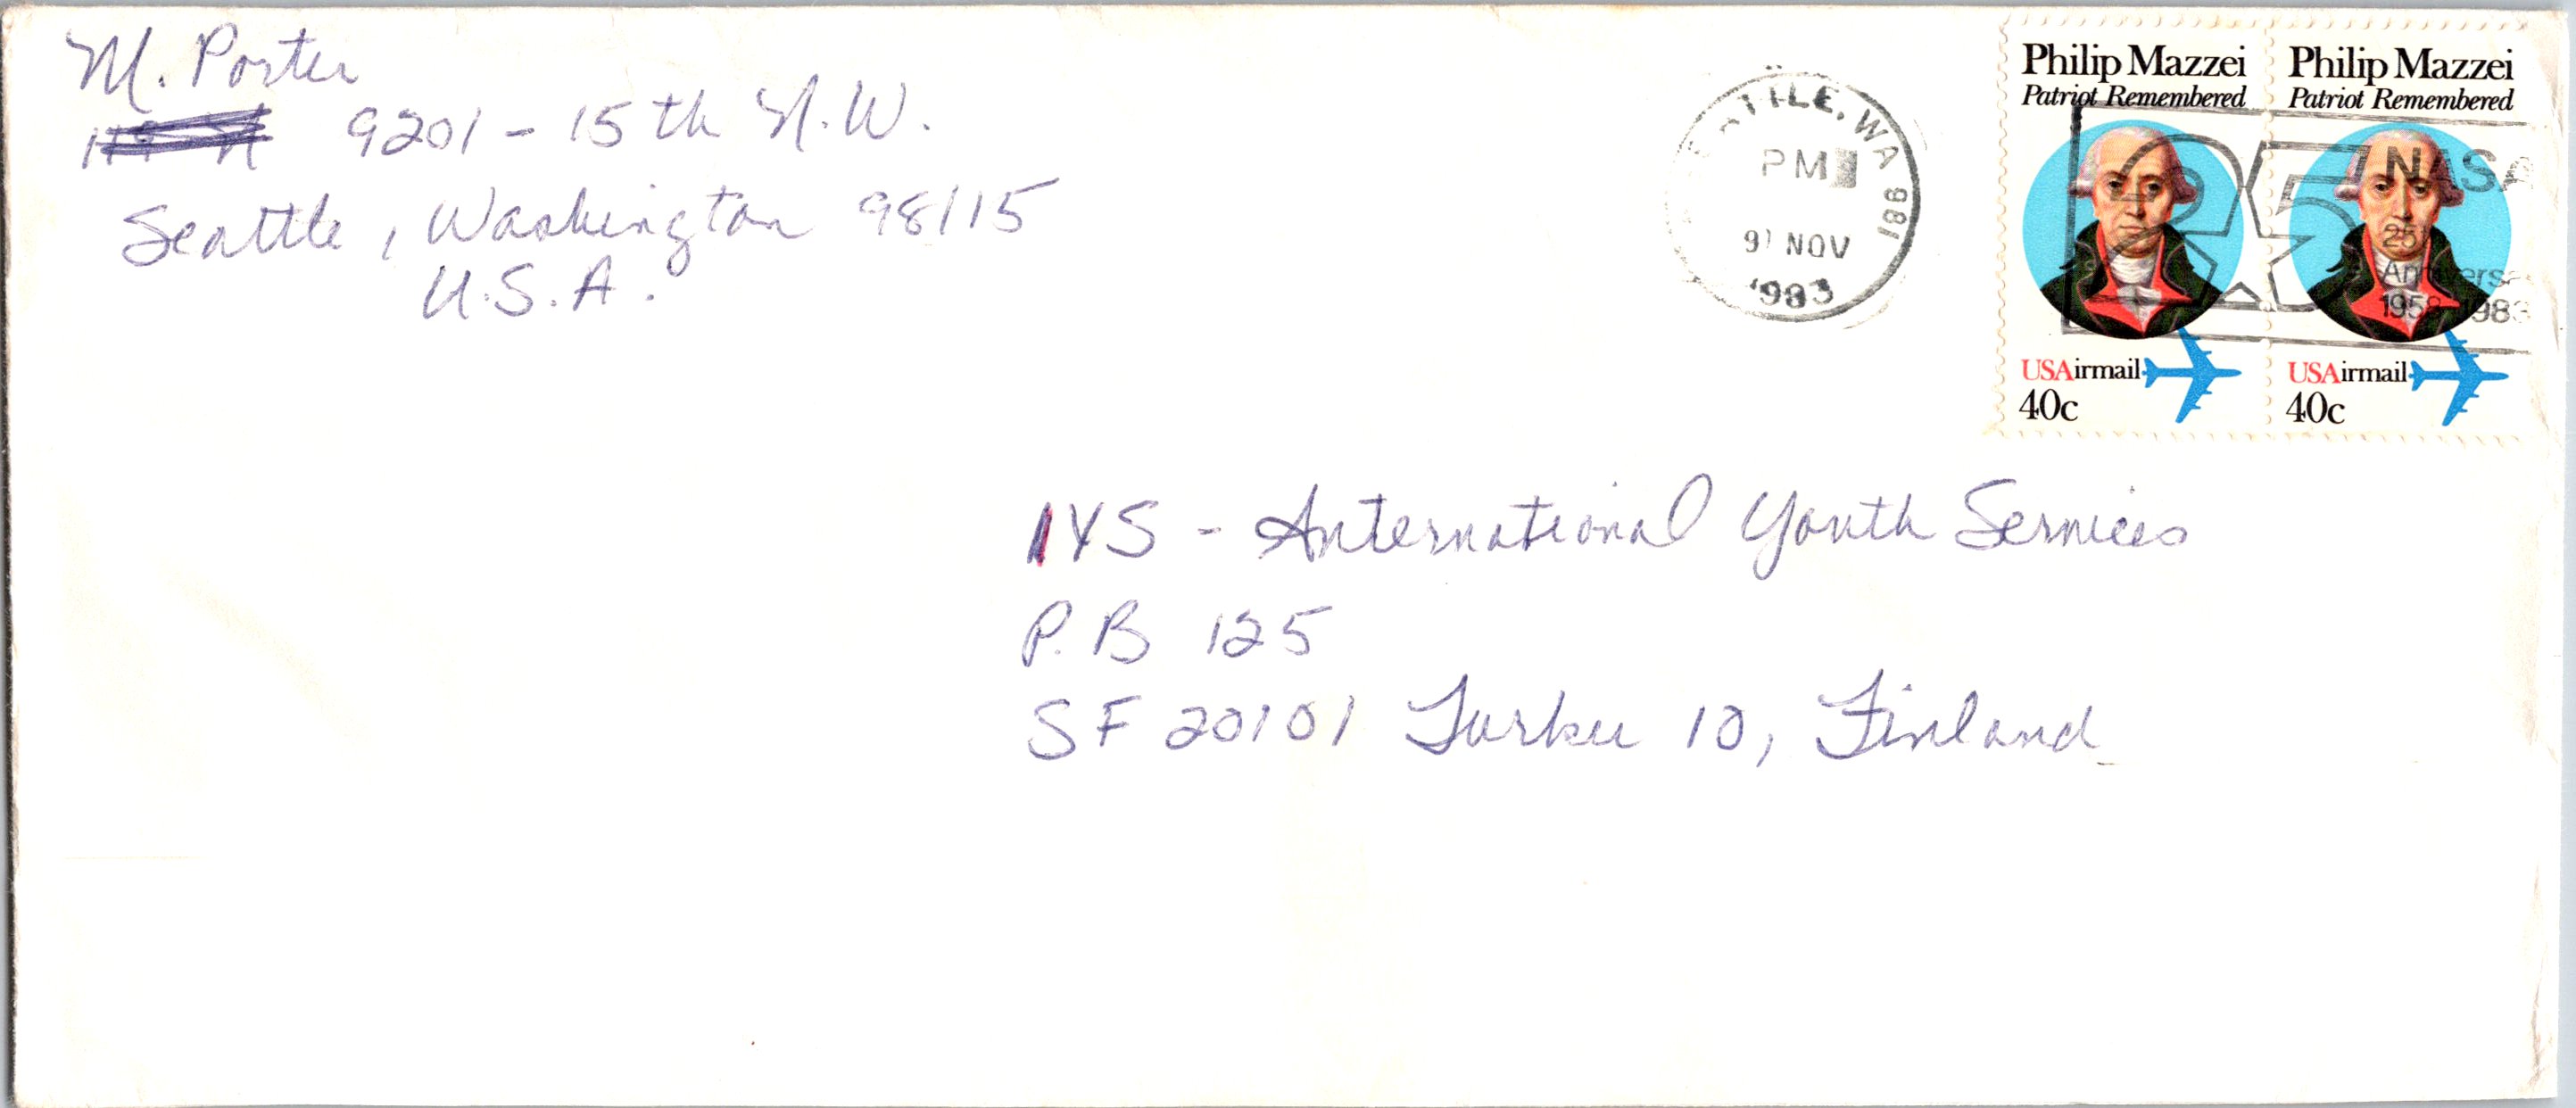 M. Porter
9201 - 15th N.W.
Seattle, Washington 98115
U.S.A.
SEATTLE, WA 981
PM
NOV
1983
Philip Mazzei
Patriot Remembered
USAirmail
40c
Philip Mazzei
Patriot Remembered
USAirmail
40c
25
NASA
25th
Anniversa
1958-1983
IYS - International Youth Services
P.B 125
SF 20101 Turku 10, Finland